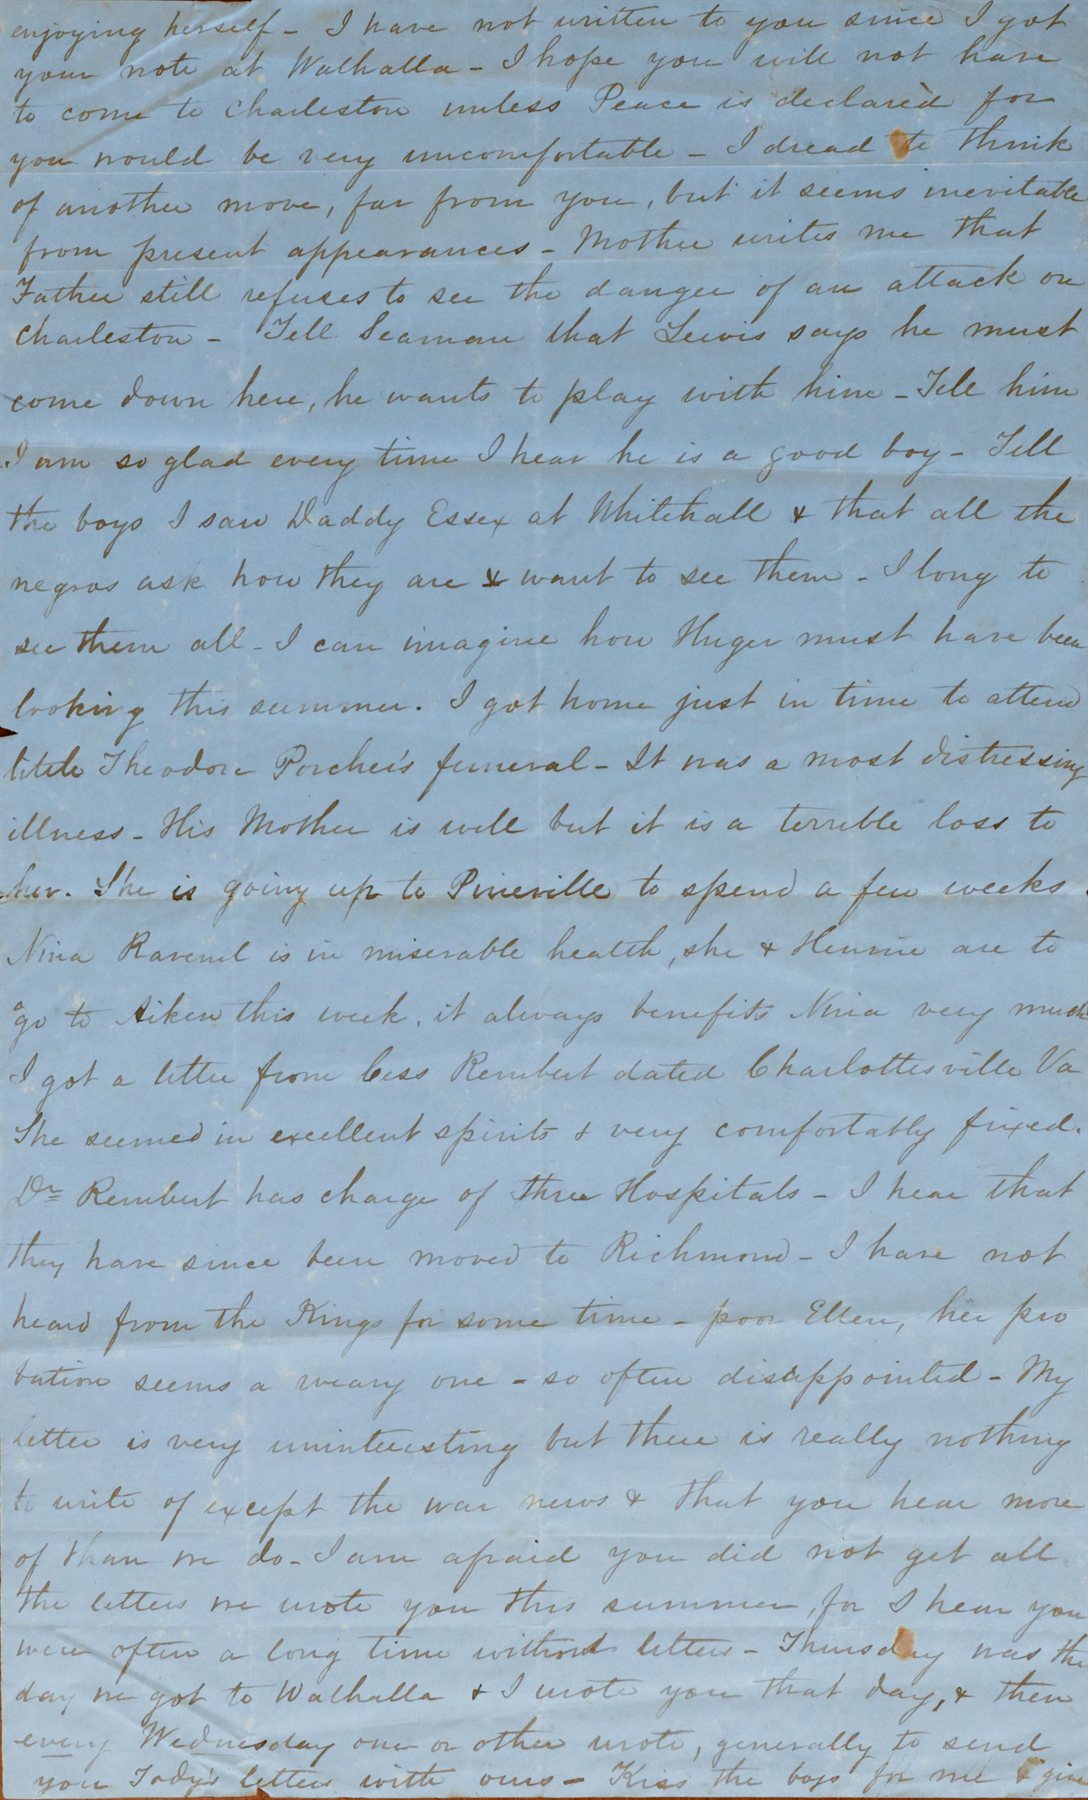 enjoying herself - I have not written to you since I got
your note at Walhalla - I hope you will not have
to come to Charleston unless Peace is declared for
you would be very uncomfortable - I dread to think
of another move, far from you, but it seems inevitable
from present appearances - Mother writes me that
Father still refuses to see the danger of an attack on
Charleston - Tell Seaman that Lewis says he must
come down here, he wants to play with him - Tell him
I am so glad every time I hear he is a good boy - Tell
the boys I saw Daddy Essex at Whitehall & that all the
negros ask how they are & want to see them - I long to
see them all - I can imagine how Huger must have been
looking this summer. I got home just in time to attend
little Theodore Porcher's funeral - It was a most distressing
illness - His Mother is well but it is a terrible loss to
her. She is going up to Pineville to spend a few weeks.
Nina Ravenel is in miserable health, she & Hennie are to
go to Aiken this week, it always benefits Nina very much
I got a letter from Cess Rembert dated Charlottesville Va
She seemed in excellent spirits & very comfortably fixed.
Dr Rembert has charge of three Hospitals - I hear that
they have since been moved to Richmond - I have not
heard from the Kings for some time - poor Ellen, her pro
bation seems a weary one - so often disappointed - My
letter is very uninteresting but there is really nothing
to write of except the war news & that you hear more
of than we do - I am afraid you did not get all
the letters we wrote you this summer, for I hear you
were often a long time without letters - Thursday was the
day we got to Walhalla & I wrote you that day, & then
every Wednesday one or other wrote, generally to send
you Tody's letters with ours - Kiss the boys for me & give